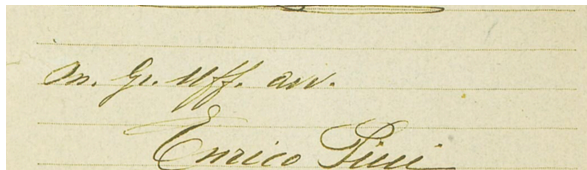 M. Gr. Uff. avv.
Enrico Pini